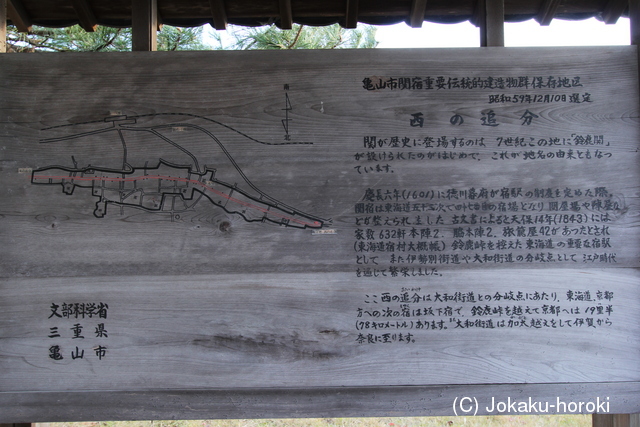 亀山市関宿重要伝統的建造物群保存地区
昭和59年12月10日選定
西の追分
関が歴史に登場するのは、7世紀この地に「鈴鹿関」
が設けられたのがはじめで、これが地名の由来ともなっ
ています。
慶長六年(1601)に徳川幕府が宿駅の制度を定めた際、
関宿は東海道五十三次で四十七番目の宿場となり、問屋場や陣屋な
どが整えられました。古文書によると天保14年(1843)には
家数632軒本陣2、脇本陣2、旅籠屋42があったとされ
(東海道宿村大概帳)鈴鹿峠を控えた東海道の重要な宿駅
として、また伊勢別街道や大和街道の分岐点として江戸時代
を通じて繁栄しました。
ここ西の追分は大和街道との分岐点にあたり、東海道、京都
方への次の宿は坂下宿で、鈴鹿峠を越えて京都へは19里半
(78キロメートル)あります。大和街道は加太越えをして伊賀から
奈良に至ります。
文部科学省
三重県
亀山市
(C) Jokaku-horoki